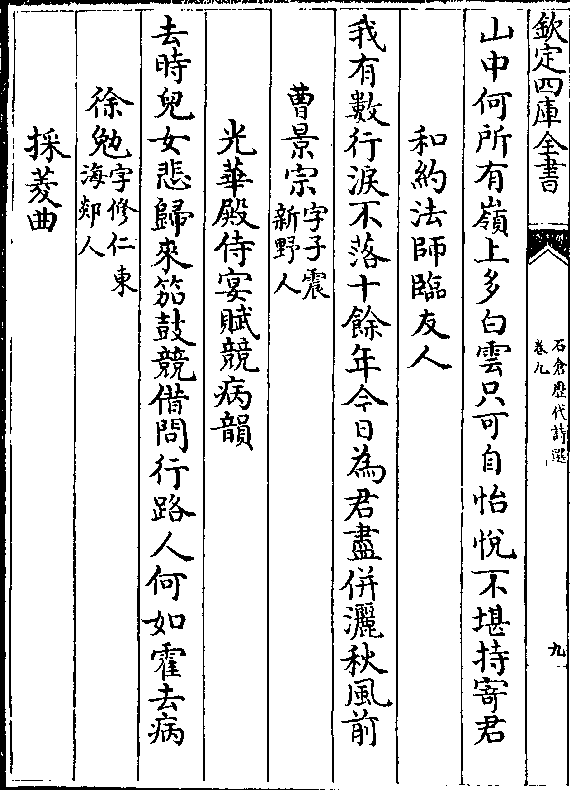 欽定四庫全書
石倉歷代詩選
卷九
九
山中何所有嶺上多白雲只可自怡悅不堪持寄君
和約法師臨友人
我有數行淚不落十餘年今日為君盡併灑秋風前
曹景宗字子震
新野人
光華殿侍宴賦競病韻
去時兒女悲歸來笳鼓競借問行路人何如霍去病
徐勉字修仁東
海郯人
採菱曲